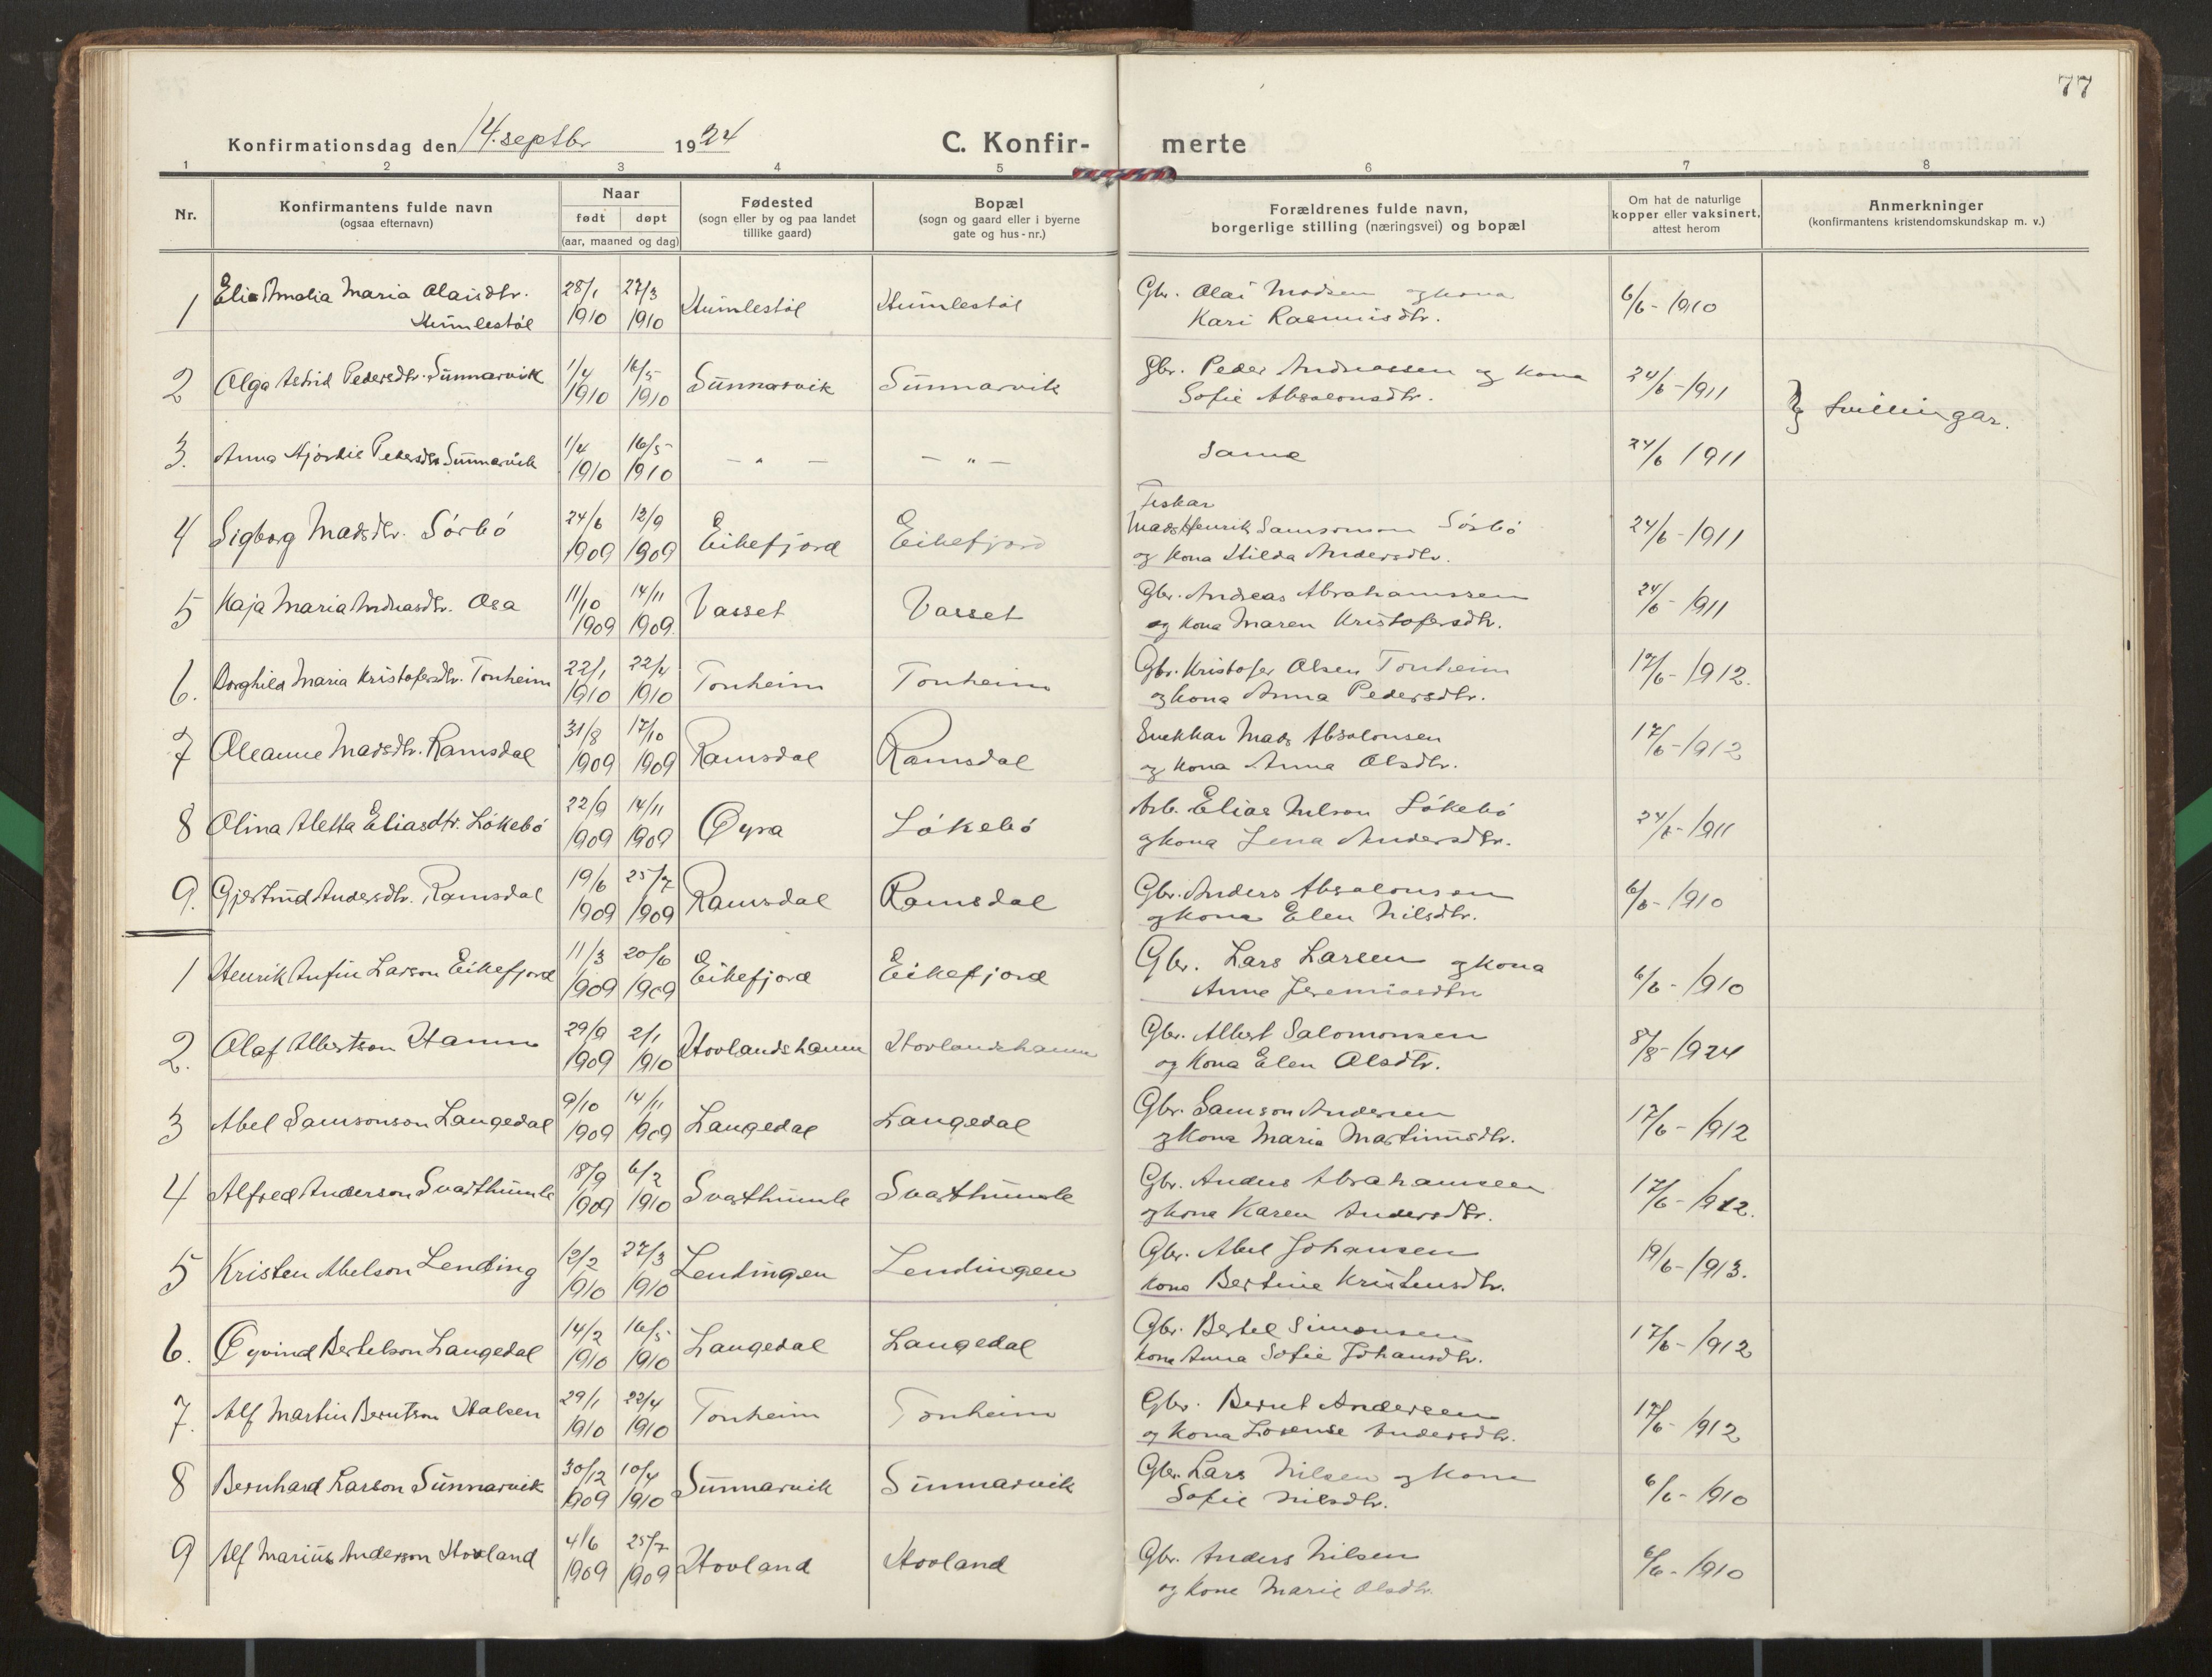 77
Konfirmationsdag den 14. septbr 1924
C. Konfir- merte
1 2 3 4 5 6 7 8
Nr.
Konfirmantens fulde navn
(ogsaa efternavn)
Naar
født døpt
(aar, maaned og dag)
Fødested
(sogn eller by og paa landet
tillike gaard)
Bopæl
(sogn og gaard eller i byerne
gate og hus-nr.)
Forældrenes fulde navn,
borgerlige stilling (næringsvei) og bopæl
Om hat de naturlige
kopper eller vaksinert,
attest herom
Anmerkninger
(konfirmantens kristendomskundskap m. v.)
1 Amalia Maria Olaisdtr. 28/1 27/3 Gbr. Olai Madsen og kona
Humlestøl 1910 1910 Humlestøl Humlestøl Kari Rasmusdtr. 6/6-1910
2 Olga Astrid Pedersdtr. Sunnarvik 1/4 16/5 Gbr. Peder Andreassen og kona
1910 1910 Sunnarvik Sunnarvik Sofie Absalonsdtr. 24/6-1911
tvillingar.
3. Anna Hjørdis Pedersdtr Sunnarvik 1/4 16/5
1910 1910 – " – – " – Same 24/6 1911
Fiskar
4 Sigborg Madsdtr. Sörbö 24/6 12/9 Mads Henrik Samsonson Sörbö
1909 1909 Eikefjord Eikefjord og kona Hilda Andersdtr. 24/6-1911
5 Kaja Maria Andreasdtr. Osa 11/10 14/11 Gbr. Andreas Abrahamssen
1909 1909. Vasset Vasset og kona Maren Kristofersdtr. 24/6-1911
6. Borghild Maria Kristofersdtr. Tonheim 22/1 22/4 Gbr. Kristofer Olsen Tonheim
1910 1910 Tonheim Tonheim og kona Anna Pedersdtr. 17/6-1912.
7 Oleanne Madsdtr. Ramsdal 31/8 17/10 Snekkar Mads Absalonsen
1909 1909 Ramsdal Ramsdal og kona Anna Olsdtr. 17/6-1912
8 Olina Aletta Eliasdtr. Lökebö 22/9 14/11 Arb. Elias Nilson Lökebö
1909 1909 Øyra Lökebö og kona Lena Andersdtr. 24/6-1911
9. Gjertrud Andersdtr. Ramsdal 19/6 25/7 Gbr. Anders Absalonsen
1909 1909 Ramsdal Ramsdal og kona Elen Nilsdtr. 6/6-1910
1 Henrik Anfin Larson Eikefjord 11/3 20/6 Gbr. Lars Larsen og kona
1909 1909 Eikefjord Eikefjord Anna Jeremiasdtr 6/6-1910
2. Olaf Albertson Hamn 29/9 2/1 Gbr. Albert Salomonsen
1909 1910 Hovlandshamn Hovlandshamn og kona Elen Olsdtr. 8/8-1924
3 Abel Samsonson Langedal 9/10 14/11 Gbr. Samson Andersen
1909 1909 Langedal Langedal og kona Maria Martinusdtr. 17/6-1912
4 Alfred Anderson Svarthumle 18/9 6/2 Gbr. Anders Abrahamsen
1909 1910 Svarthumle Svarthumle og kona Karen Andersdtr. 17/6-1912.
5 Kristen Abelson Lending 12/2 27/3 Gbr. Abel Johansen
1910 1910 Lendingen Lendingen kona Bertine Kristensdtr. 19/6-1913.
6. Øyvind Bertelson Langedal 14/2 16/5 Gbr. Bertel Simonsen
1910 1910 Langedal Langedal kona Anna Sofie Johansdtr. 17/6-1912
7. Alf Martin Berntson Halsen 29/1 22/4 Gbr. Bernt Andersen
1910 1910 Tonheim Tonheim og kona Lovense Andersdtr. 17/6-1912
8 Bernhard Larson Sunnarvik 30/12 10/4 Gbr. Lars Nilsen og kona
1909 1910 Sunnarvik Sunnarvik Sofie Nilsdtr. 6/6-1910
9 Alf Marius Anderson Hovland 4/6 25/7 Gbr. Anders Nilsen
1909 1909 Hovland Hovland og kona Marie Olsdtr. 6/6-1910